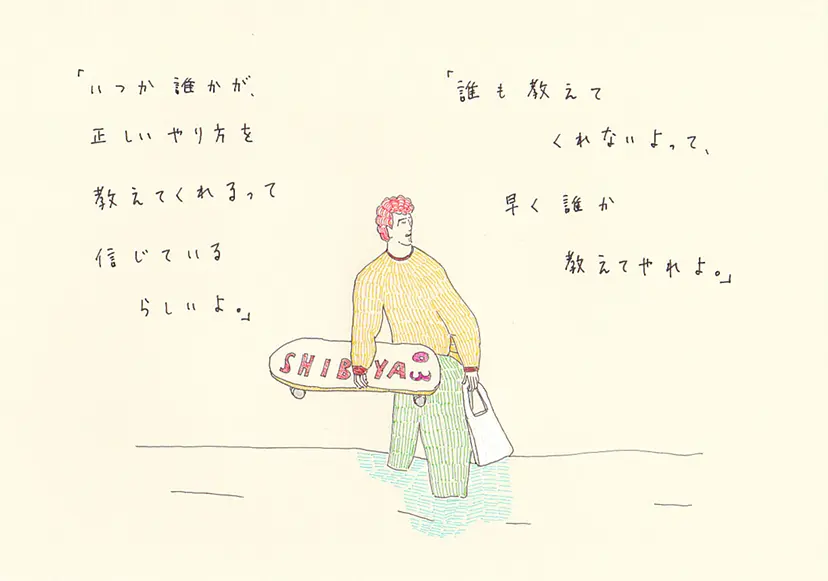 「いつか誰かが、
正しいやり方を
教えてくれるって
信じている
らしいよ。」
「誰も教えて
くれないよって、
早く誰か
教えてやれよ。」
SHIBUYA